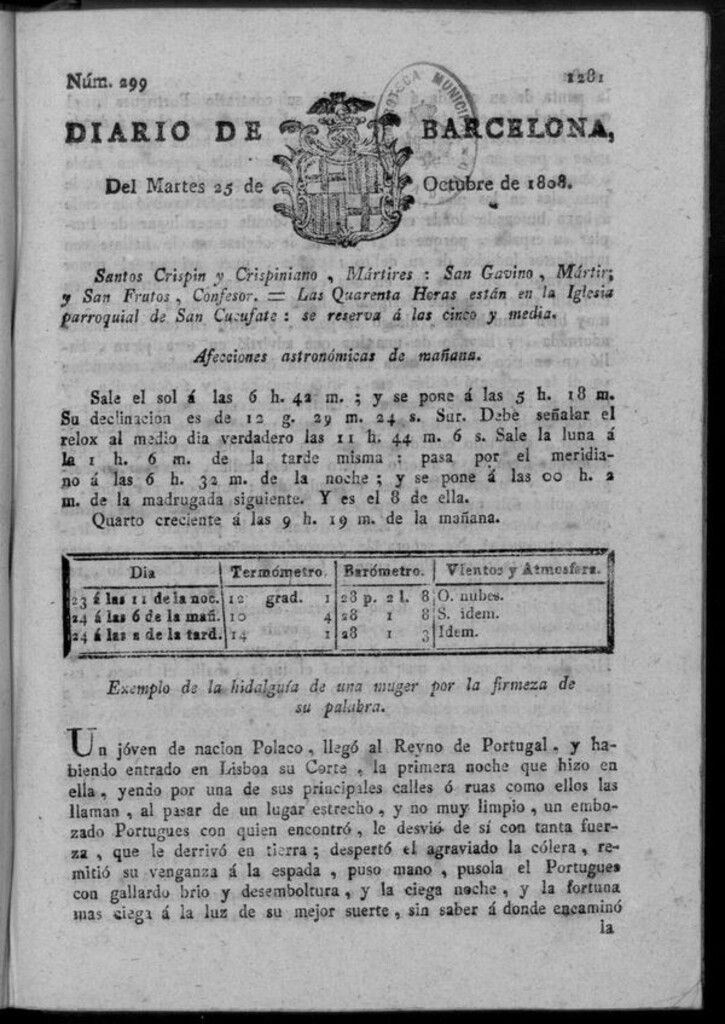 Núm. 299 1281
DIARIO DE BARCELONA,
Del Martes 25 de Octubre de 1808.
BIBLIOTECA MUNICIPAL
Santos Crispin y Crispiniano , Mártires : San Gavino , Mártir;
y San Frutos , Confesor. = Las Quarenta Horas están en la Iglesia
parroquial de San Cucufate : se reserva á las cinco y media.
Afecciones astronómicas de mañana.
Sale el sol á las 6 h. 42 m. ; y se pone á las 5 h. 18 m.
Su declinacion es de 12 g. 29 m. 24 s. Sur. Debe señalar el
relox al medio dia verdadero las 11 h. 44 m. 6 s. Sale la luna á
la 1 h. 6 m. de la tarde misma : pasa por el meridia-
no á las 6 h. 32 m. de la noche ; y se pone á las 00 h. 2
m. de la madrugada siguiente. Y es el 8 de ella.
Quarto creciente á las 9 h. 19 m. de la mañana.
Dia Termómetro. Barómetro. Vientos y Atmosfera.
23 á las 11 de la noc. 12 grad. 1 28 p. 2 l. 8 O. nubes.
24 á las 6 de la mañ. 10 4 28 1 8 S. idem.
24 á las 2 de la tard. 14 1 28 1 3 Idem.
Exemplo de la hidalguía de una muger por la firmeza de
su palabra.
Un jóven de nacion Polaco , llegó al Reyno de Portugal , y ha-
biendo entrado en Lisboa su Corte , la primera noche que hizo en
ella , yendo por una de sus principales calles ó ruas como ellos las
llaman , al pasar de un lugar estrecho , y no muy limpio , un embo-
zado Portugues con quien encontró , le desvió de sí con tanta fuer-
za , que le derrivó en tierra ; despertó el agraviado la cólera , re-
mitió su venganza á la espada , puso mano , pusola el Portugues
con gallardo brio y desemboltura , y la ciega noche , y la fortuna
mas ciega á la luz de su mejor suerte , sin saber á donde encaminó
la